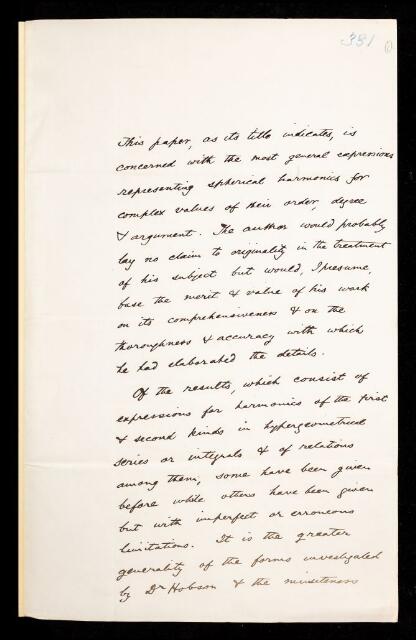 381
This paper, as its title indicates, is
concerned with the most general expressions
representing spherical harmonics for
complex values of their order, degree
& argument. The author would probably
lay no claim to originality in the treatment
of his subject but would, I presume,
base the merit & value of his work
on its comprehensiveness & on the
thoroughness & accuracy with which
he had elaborated the details.
Of the results, which consist of
expressions for harmonics of the first
& second kinds in hypergeometrical
series or integrals & of relations
among them, some have been given
before while others have been given
but with imperfect or erroneous
limitations. It is the greater
generality of the forms investigated
by Dr Hobson & the minuteness